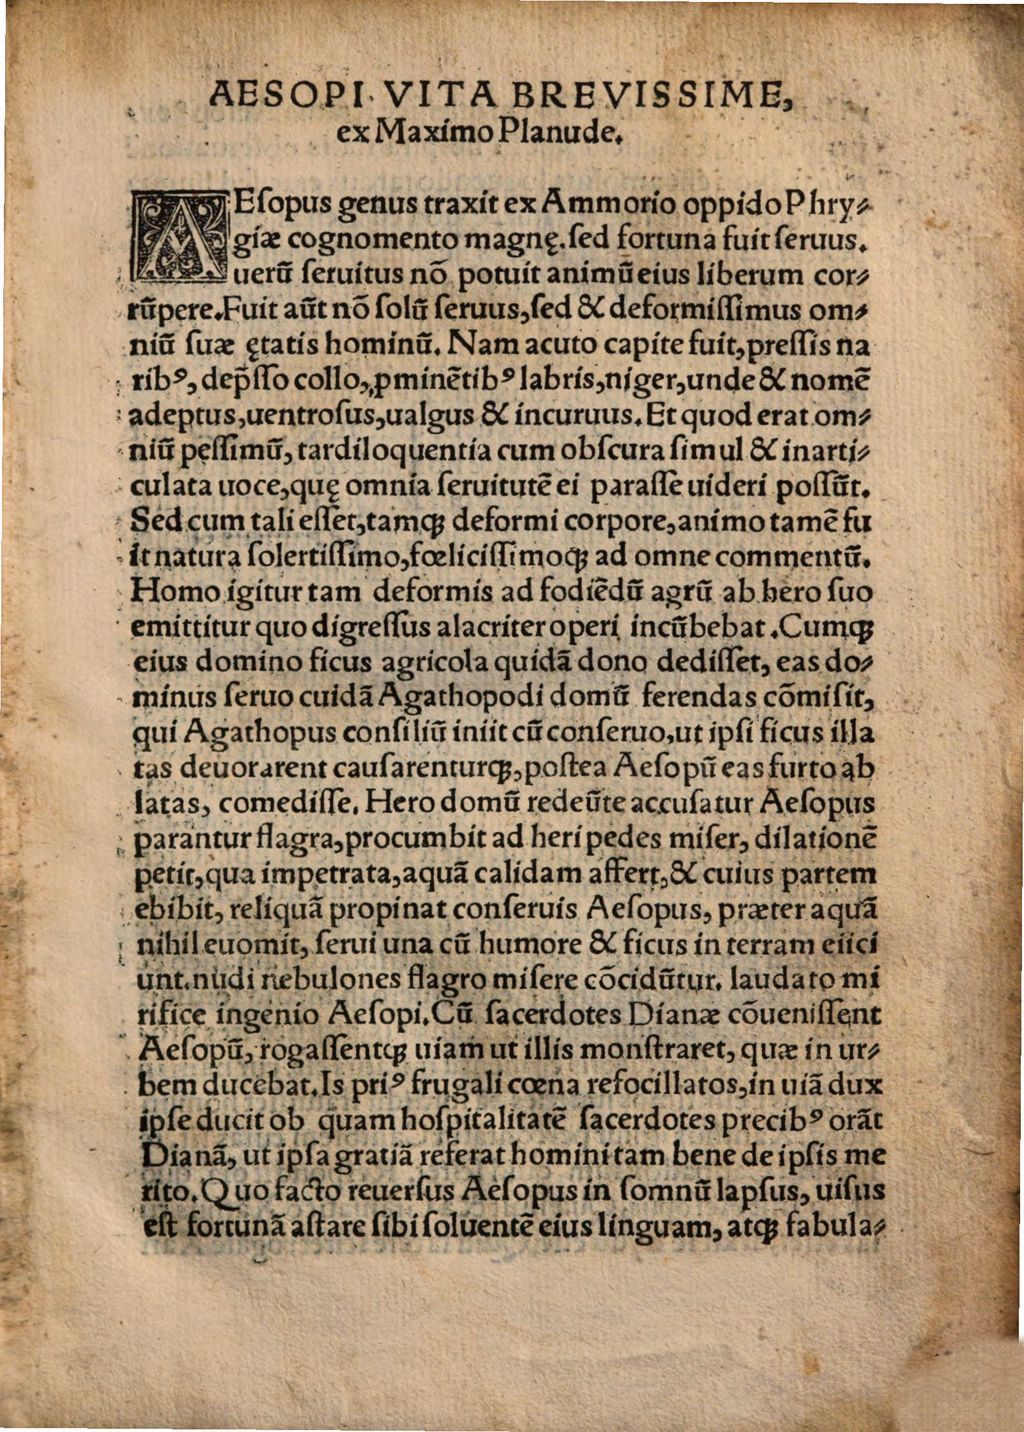 AESOPI VITA BREVISSIME,
ex Maximo Planude.
AEſopus genus traxit ex Ammorio oppido Phry⸗
giæ cognomento magnę. ſed fortuna fuit ſeruus.
uerū ſeruitus nō potuit animū eius liberum cor⸗
rūpere. Fuit aūt nō ſolū ſeruus, ſed & deformiſſimus om⸗
niū ſuæ ętatis hominū. Nam acuto capite fuit, preſſis na
ribꝰ, dep̄ſſo collo, ꝓminētibꝰ labris, niger, unde & nomē
adeptus, uentroſus, ualgus & incuruus. Et quod erat om⸗
niū peſſimū, tardiloquentia cum obſcura ſimul & inarti⸗
culata uoce, quę omnia ſeruitutē ei paraſſe uideri poſſūt.
Sed cum tali eſſet, tamq́ꝫ deformi corpore, animo tamē fu
it natura ſolertiſſimo, fœliciſſimoqꝫ ad omne commentū.
Homo igitur tam deformis ad fodiēdū agrū ab hero ſuo
emittitur quo digreſſus alacriter operi incūbebat. Cumqꝫ
eius domino ficus agricola quidā dono dediſſet, eas do⸗
minus ſeruo cuidā Agathopodi domū ferendas cōmiſit,
qui Agathopus conſiliū iniit cū conſeruo, ut ipſi ficus illa
tas deuorarent cauſarenturqꝫ, poſtea Aeſopū eas furto ab
latas, comediſſe. Hero domū redeūte accuſatur Aeſopus
parantur flagra, procumbit ad heri pedes miſer, dilationē
petit, qua impetrata, aquā calidam affert, & cuius partem
ebibit, reliquā propinat conſeruis Aeſopus, præter aquā
nihil euomit, ſerui una cū humore & ficus in terram eiici
unt. nudi nebulones flagro miſere cōcidūtur. laudato mi
rifice ingenio Aeſopi. Cū ſacerdotes Dianæ cōueniſſent
Aeſopū, rogaſſentqꝫ uiam ut illis monſtraret, quæ in ur⸗
bem ducebat. Is priꝰ frugali cœna refocillatos, in uiā dux
ipſe ducit ob quam hoſpitalitatē ſacerdotes precibꝰ orāt
Dianā, ut ipſa gratiā referat homini tam bene de ipſis me
rito. Quo facto reuerſus Aeſopus in ſomnū lapſus, uiſus
eſt fortunā aſtare ſibi ſoluentē eius linguam, atqꝫ fabula⸗